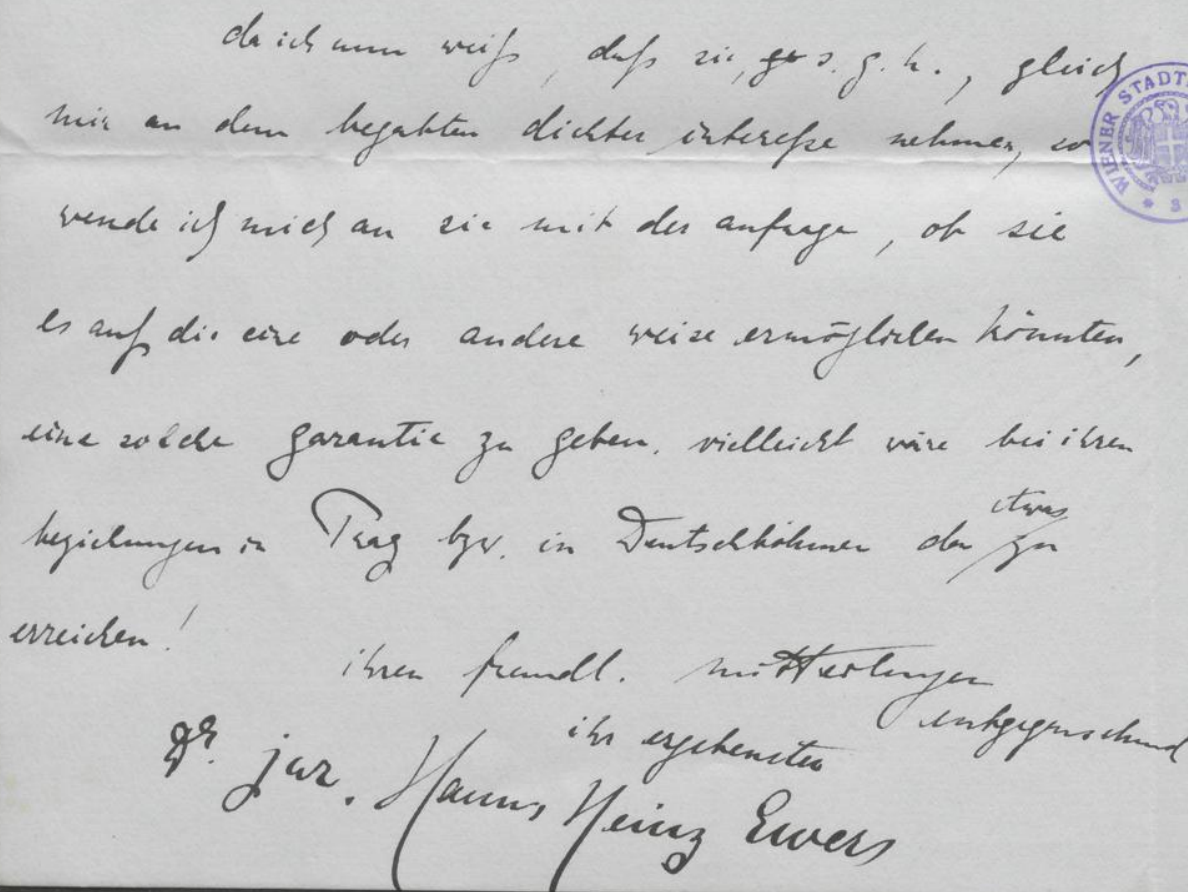 da ich nun weiß, daß sie, s. g. h., gleich
mir an dem begabten dichter intereße nehmen, so
wende ich mich an sie mit der anfrage, ob sie
es auf die eine oder andere weise ermöglichen könnten,
eine solche garantie zu geben. vielleicht wäre bei ihren
beziehungen in Prag bzw. in Deutschböhmen da etwas zu
erreichen!
ihren freundl. mitteilungen
entgegensehend
ihr ergebenster
Dr. jur. Hanns Heinz Ewers
WIENER STADT